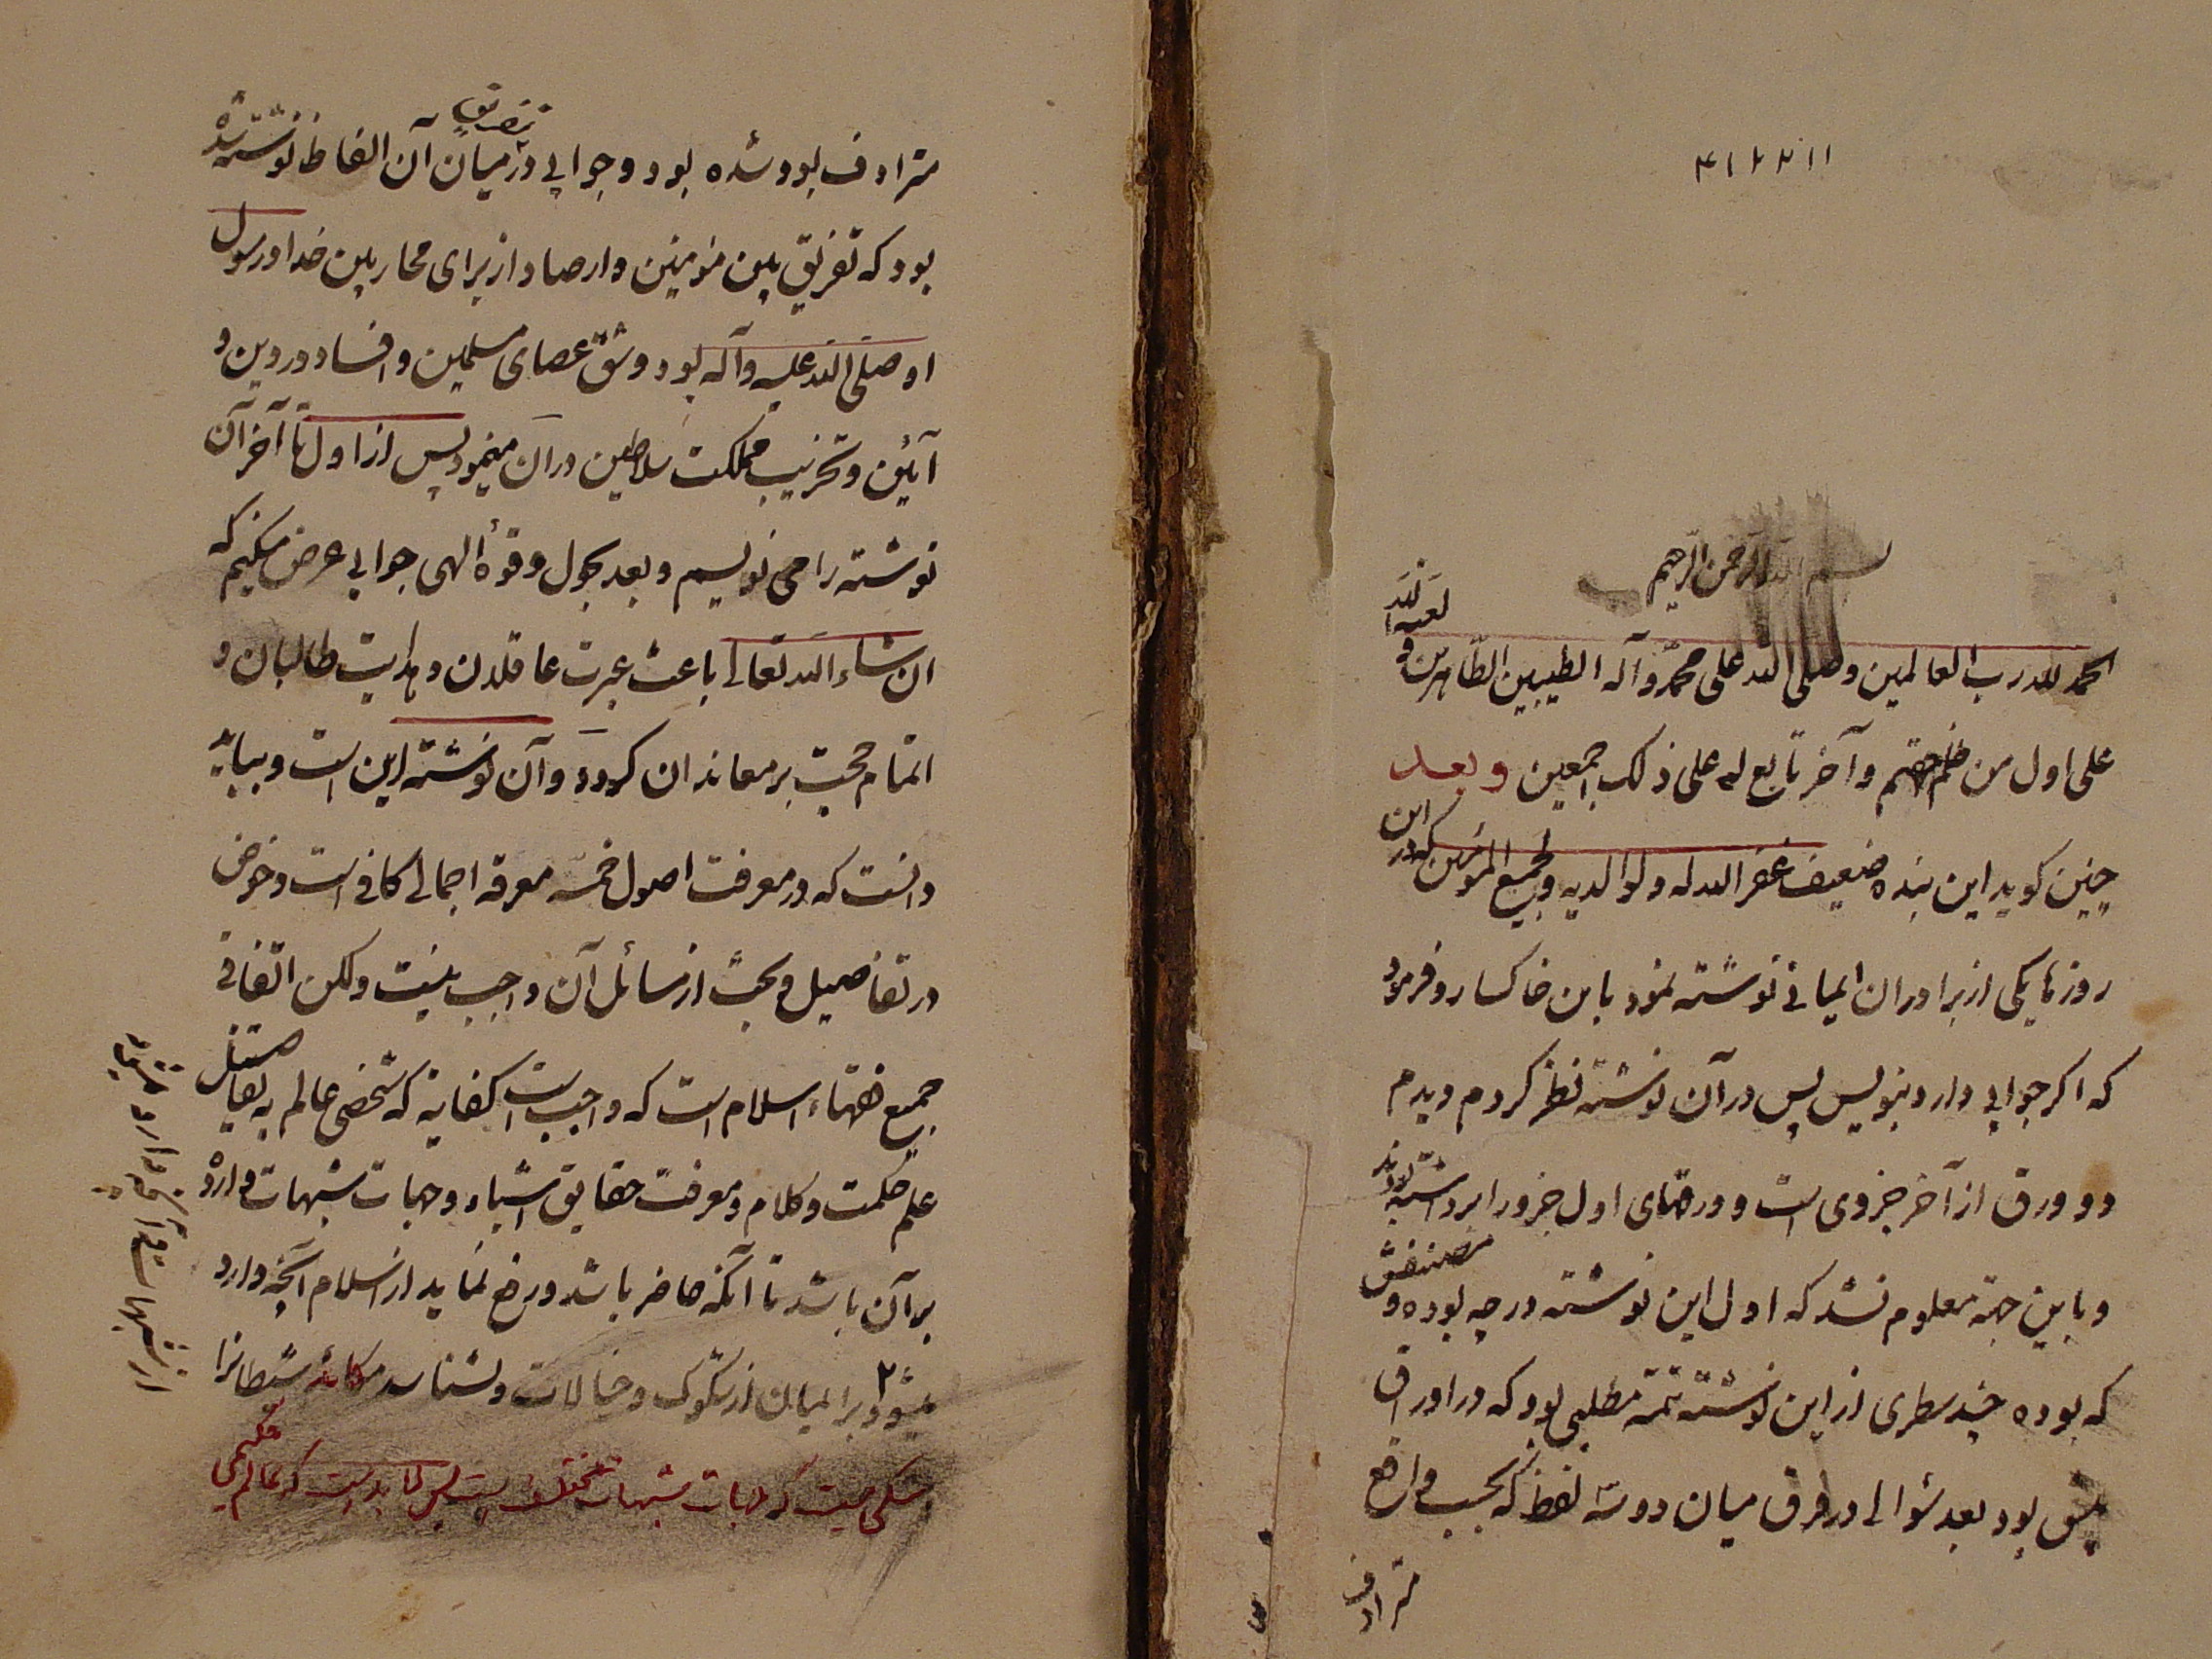 ۴۱۲۳۱۱
بسم الله الرحمن الرحیم
الحمد لله رب العالمین و صلی الله علی محمد و آله الطیبین الطاهرین و لعنة الله
علی اول من ظلم حقهم و آخر تابع له علی ذلک اجمعین و بعد
چنین کوید این بنده ضعیف غفر الله له و لوالدیه و لجمیع المؤمنین که در این
روزها یکی از برادران ایمانی نوشته نمود باین خاکسار و فرمود
که اکر جوابی دارد بنویس پس در آن نوشته نظر کردم دیدم
دو ورق از آخر جزوی است و ورقهای اول جزو را برداشته بودند
و باین جهة معلوم نشد که اول این نوشته در چه بوده و مصنفش
که بوده چند سطری از این نوشته تتمه مطلبی بود که در اوراق
پیش بود بعد سؤالی در فرق میان دو سه لفظ که بحسب واقع
مترادف
مترادف بود شده بود و جوابی در میان آن الفاظ نوشته شده
بتفریق
بود که تفریق بین مؤمنین و ارصاد از برای محاربین خدا و رسول
او صلی الله علیه و آله بود و شق عصای مسلمین و افساد در دین و
آئین و تخریب مملکت سلاطین در آن مینمود پس از اول تا آخر آن
نوشته را می نویسم و بعد بحول و قوة الهی جوابی عرض میکنیم که
ان شاء الله تعالی باعث عبرت عاقلان و هدایت طالبان و
اتمام حجت بر معاندان کردد و آن نوشته این است و بباید
دانست که در معرفت اصول خمسه معرفة اجمالی کافی است و خوض
در تفاصیل و بحث از مسائل آن واجب نیست ولکن اتفاقی
جمیع فقهاء اسلام است که واجب است کفایة که شخصی عالم به تفاصیل
علم حکمت و کلام و معرفت حقایق اشیاء و جهات شبهات وارده
بر آن باشد تا آنکه حاضر باشد و رفع نماید از اسلام آنچه وارد
میشود بر ایمان از شکوک و خیالات و بشناسد مکائد شیطانرا
شکی نیست که جهات شبهات مختلف است پس لابد است که عالم حکیمی
از شبهات